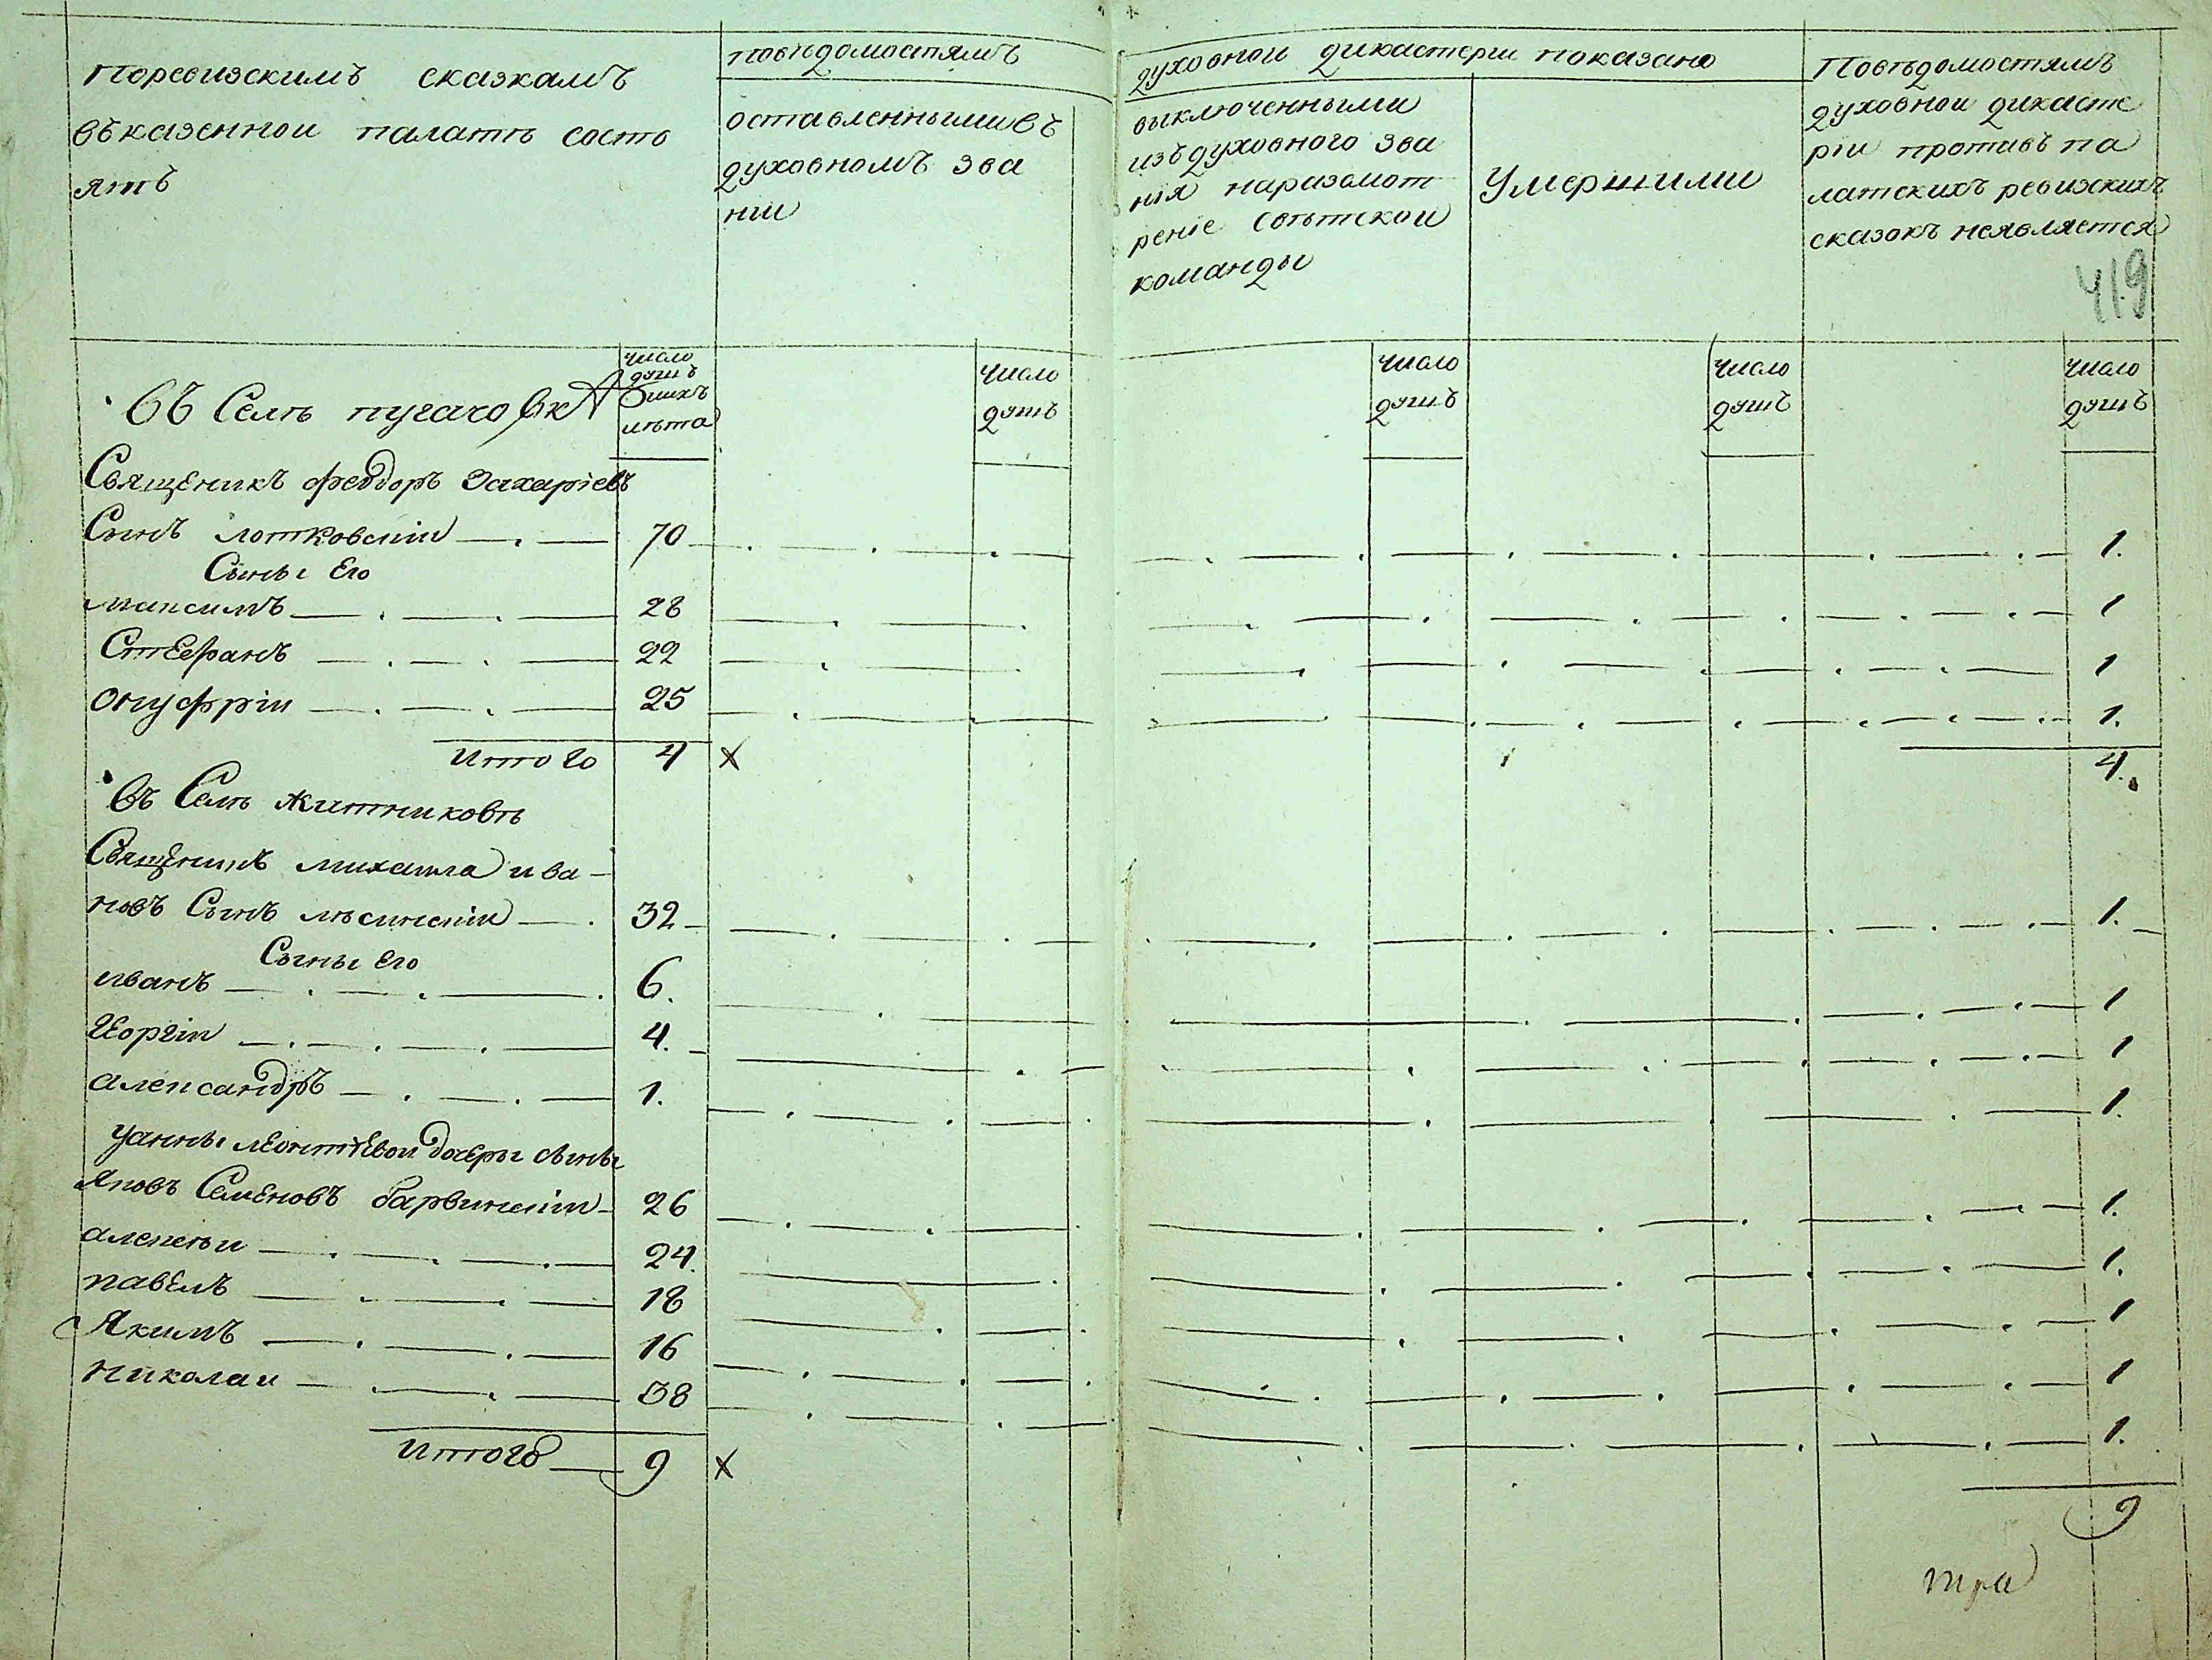 Поревизскимъ сказкамъ
въказеннои палатѣ состо
ятъ
Повѣдомостямъ
оставленнымивъ
духовномъ зва
нии
духовнои дикастерии показано
выключенными
изъдуховного зва
нія наразсмот
реніе свѣтскои
команды
Умершими
Повѣдомостямъ
духовнои дикасте
ріи противъ па
латскихъ ревизскихъ
сказокъ неявляется
419
число
душъ
ихъ
лѣта
число
душъ
число
душъ
число
душъ
число
душъ
Въ Селѣ пугачовкѣ
Священикъ феодоръ Захаріевъ
Сынъ лотковскіи 70 1.
Сыны Его
максимъ 28 1
Стефанъ 22 1
онуфріи 25 1.
Итого 4 х 4.
Въ Селѣ житниковѣ
Священикъ михаила ива
новъ Сынъ лѣсинскіи 32 1.
Сыны Его
иванъ 6. 1
Георгіи 4. 1
александръ 1. 1.
Уанны леонтіевои дочеры сыны
Яковъ Семеновъ барвинскіи 26 1.
алексѣи 24. 1.
павелъ 18 1
Якимъ 16 1
Николаи 38 1.
Итого 9 х
9